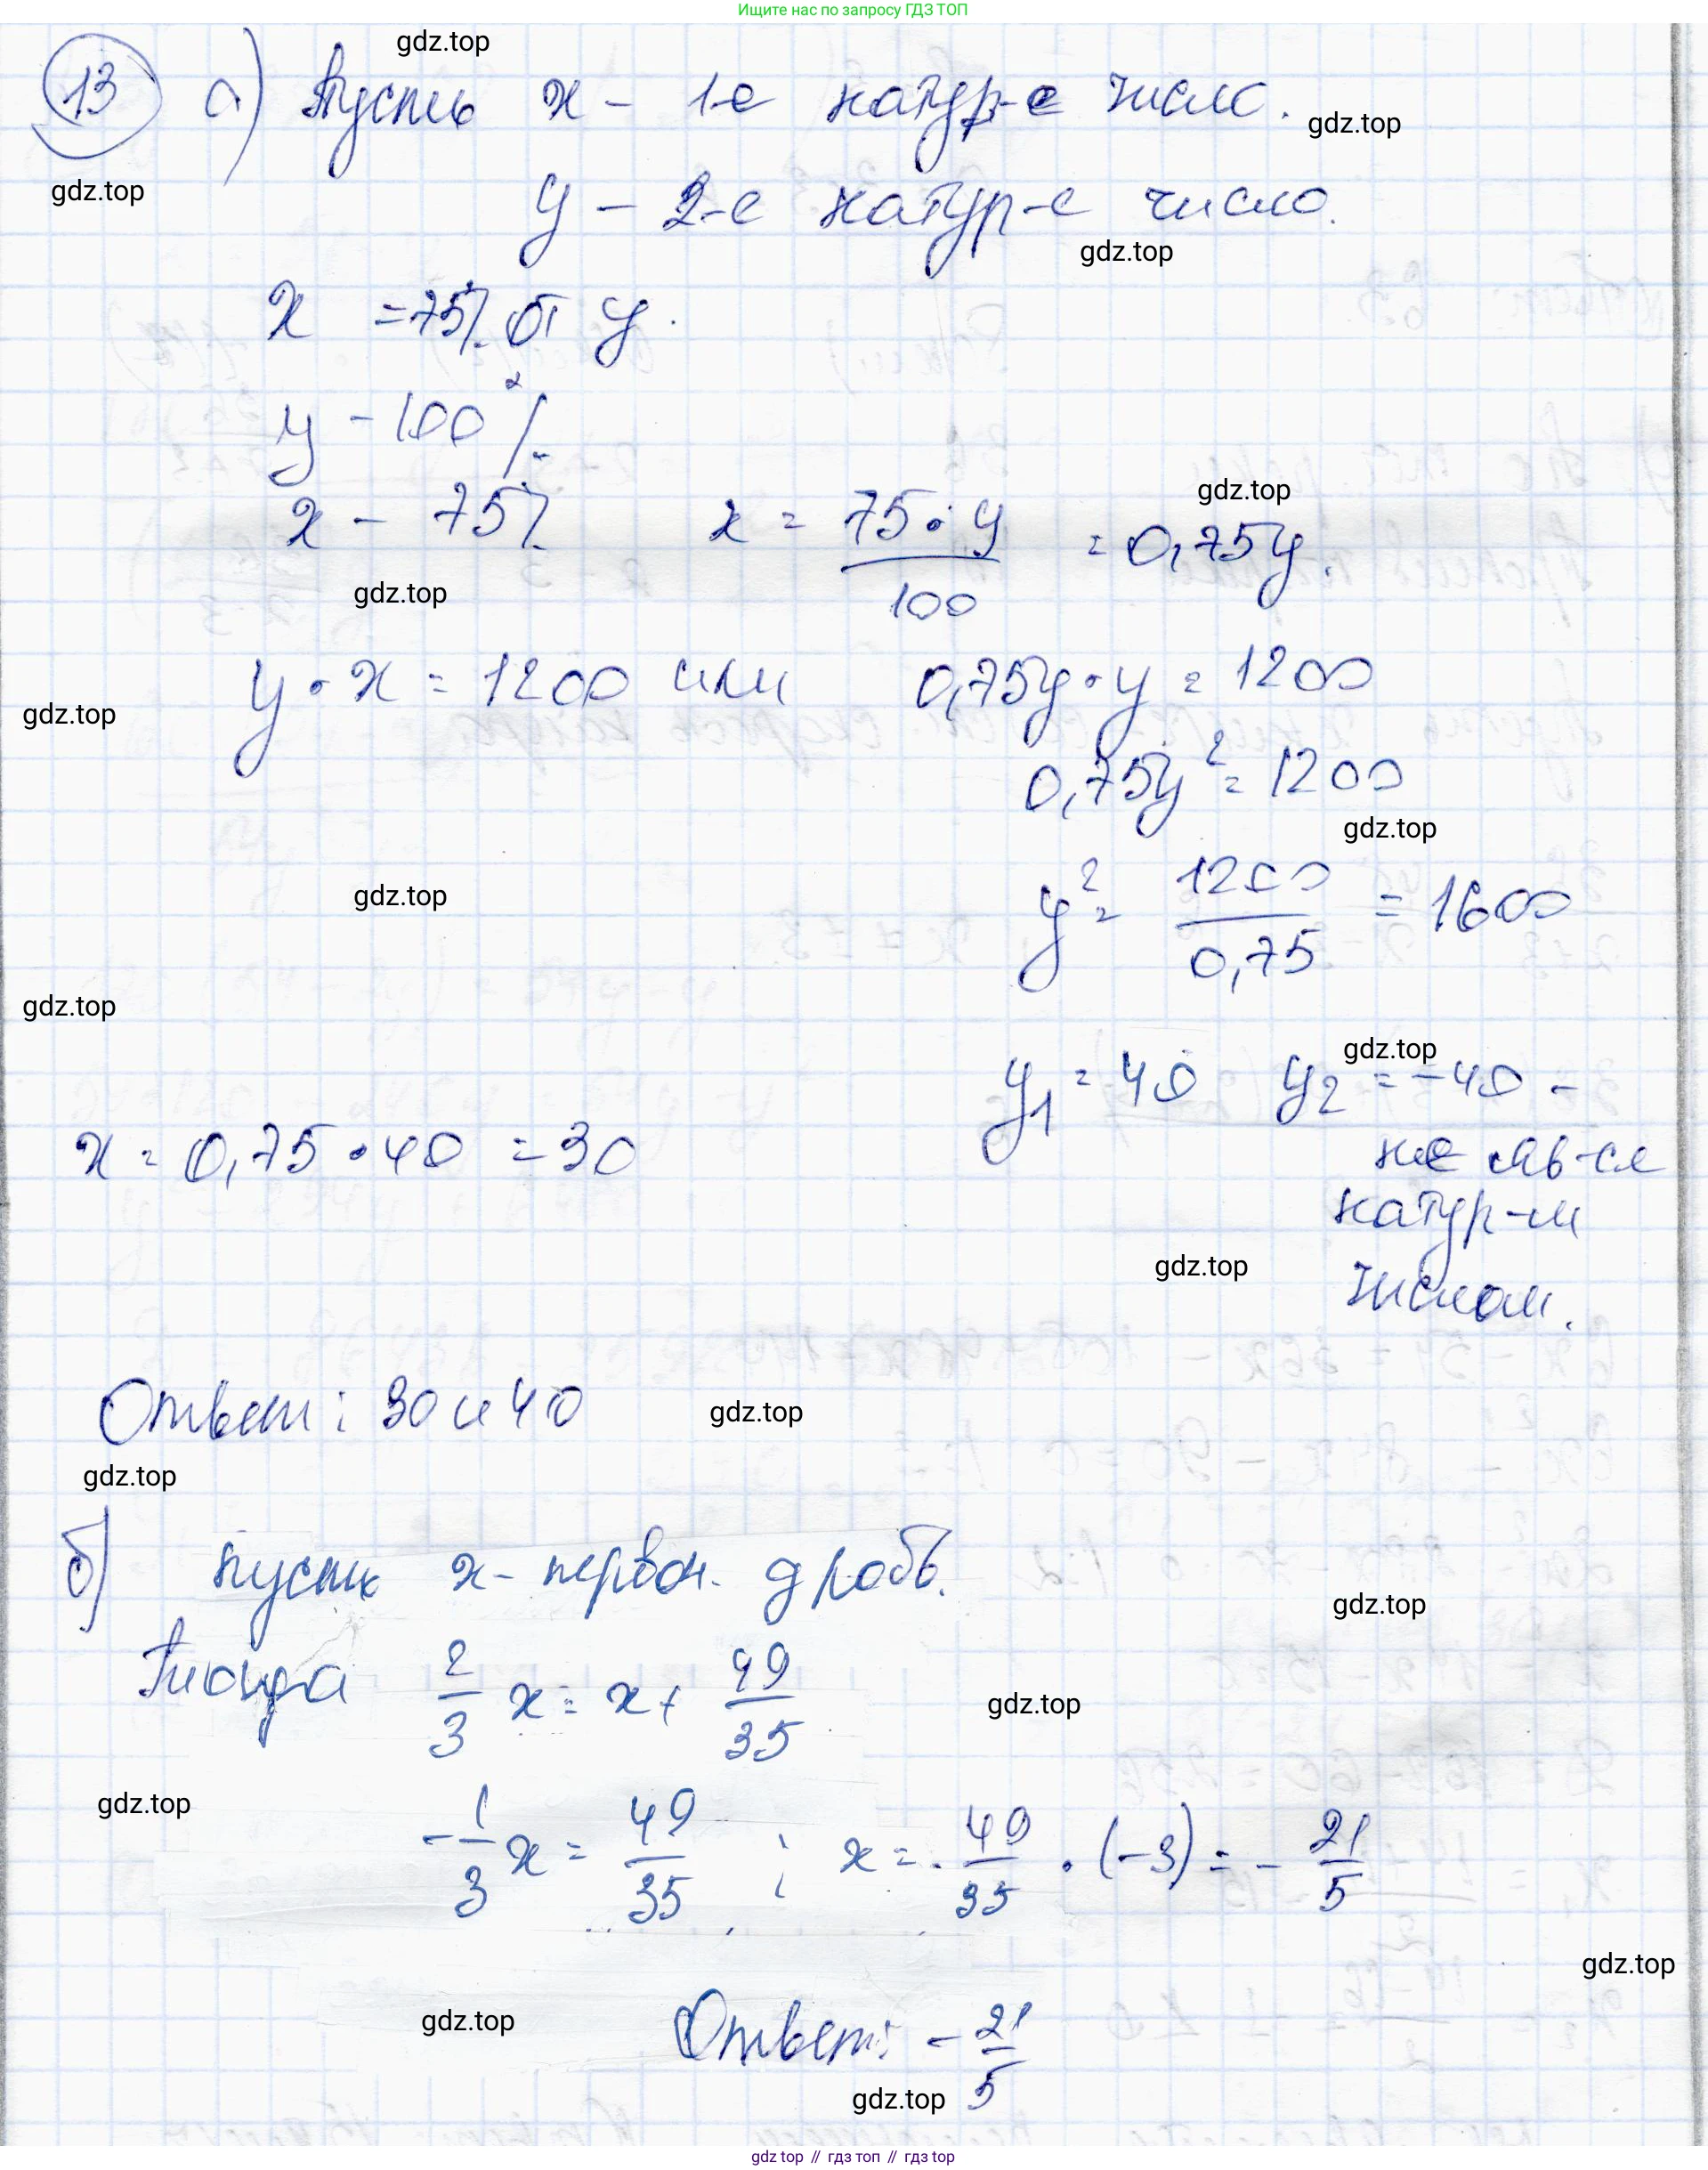 Ищите нас по запросу ГДЗ ТОП
gdz.top
13 а) Пусть x – 1-е натур-е число.
gdz.top
gdz.top
y – 2-е натур-е число.
gdz.top
x = 75% от y.
y – 100%
gdz.top
x – 75% x = 75·y/100 = 0,75y.
gdz.top
y·x = 1200 или 0,75y·y = 1200
gdz.top
0,75y² = 1200
gdz.top
gdz.top
y² = 1200/0,75 = 1600
gdz.top
gdz.top
y₁ = 40 y₂ = –40 –
x = 0,75·40 = 30
не яв-ся
натур-м
gdz.top
числом.
Ответ: 30 и 40
gdz.top
gdz.top
б) Пусть x – первон. дробь.
gdz.top
Тогда 2/3 x = x + 49/35
gdz.top
gdz.top
-1/3 x = 49/35 ; x = 49/35 · (-3) = - 21/5
gdz.top
gdz.top
Ответ: - 21/5
gdz.top
gdz top // гдз топ // гдз top